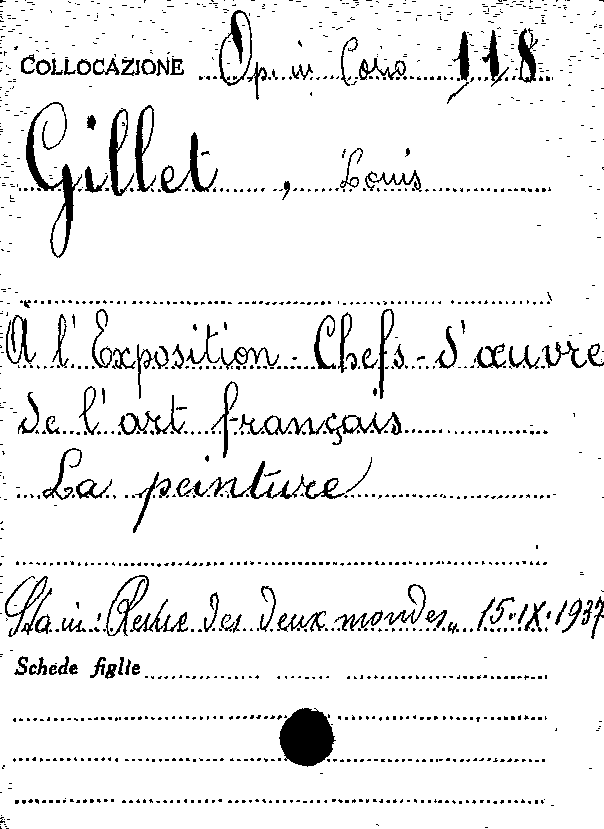 COLLOCAZIONE Op. in Corso 118
Gillet, Louis
À l'Exposition - Chefs-d'œuvre
de l'art français
La peinture
Sta in: Revue des deux mondes„ 15.IX.1937
Schede figlie